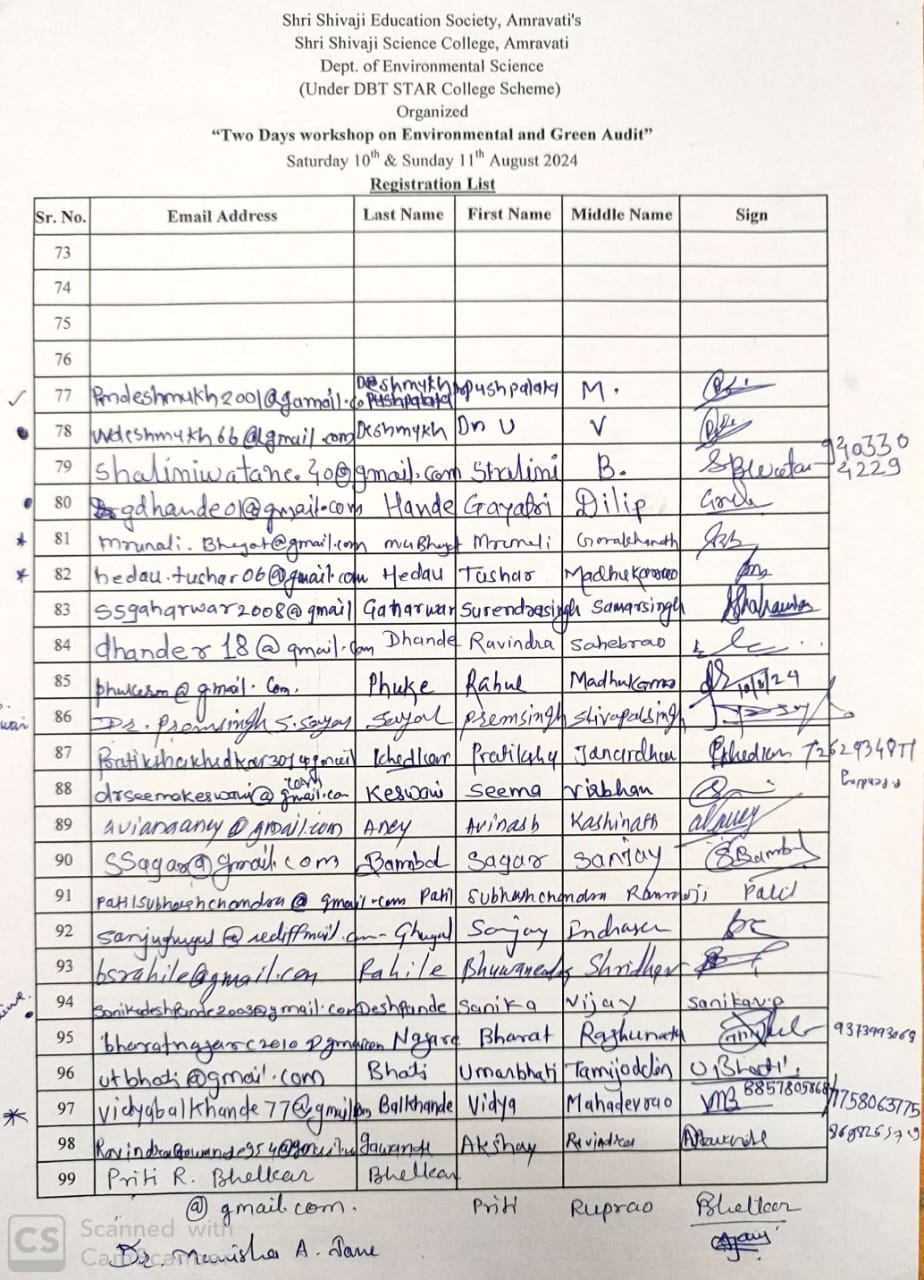 Shri Shivaji Education Society, Amravati's
Shri Shivaji Science College, Amravati
Dept. of Environmental Science
(Under DBT STAR College Scheme)
Organized
“Two Days workshop on Environmental and Green Audit”
Saturday 10th & Sunday 11th August 2024
Registration List
Sr. No. Email Address Last Name First Name Middle Name Sign
73
74
75
76
77 Pmdeshmukh2001@gamail.co Deshmykh Pushpalata Pushpalata M.
78 vvdeshmykh66@gmail.com Deshmykh Dn U V
79 shaliniwatane.40@gmail.com Stralini B. 940330
4229
80 gdhande01@gmail.com Hande Gayatri Dilip
81 mrunali.Bhegat@gmail.com Mrunali Goralchanath
82 hedau.tushar06@gmail.com Hedau Tushar Madhukarrao
83 ssgaharwar2008@gmail Gaharwar Surendrasingh Samarsingh
84 dhander18@gmail.com Dhande Ravindra Sahebrao
85 phukerm@gmail.com. Phuke Rahul 10/8/24
86 Dr. Premsingh S. Sayal Premsingh Shivapalsingh
87 Pratiksha Janardhan 7262934877
88 drseemakeswani@gmail.com Keswani Seema Virbhan
89 avianaaney@gmail.com Aney Avinash Kashinath
90 SSagar@gmail.com Bambal Sagar Sanjay SBambal
91 patilsubhashchandra@gmail.com Patil Subhashchandra Ramraoji Patil
92 sanjughugal@rediffmail.com Ghugal Sanjay Indrasen
93 bsrahile@gmail.com Rahile Shridhar
94 sanikadeshpande2003@gmail.com Deshpande Sanika Vijay sanikav.p
95 bharatnagare2010@gmail.com Nagare Bharat Raghunath 9373993069
96 utbhati@gmail.com Bhati Umarbhati Tamijoddin U.Bhati
97 vidyabalkhande77@gmail.com Balkhande Vidya Mahadevrao VMB 8857805868/7758063775
98 Gawande Akshay Ravindra
99 Priti R. Bhelkar Bhelkar
@gmail.com. Priti Ruprao Bhelkar
Dr. Manisha A. Jane
CS Scanned with
CamScanner